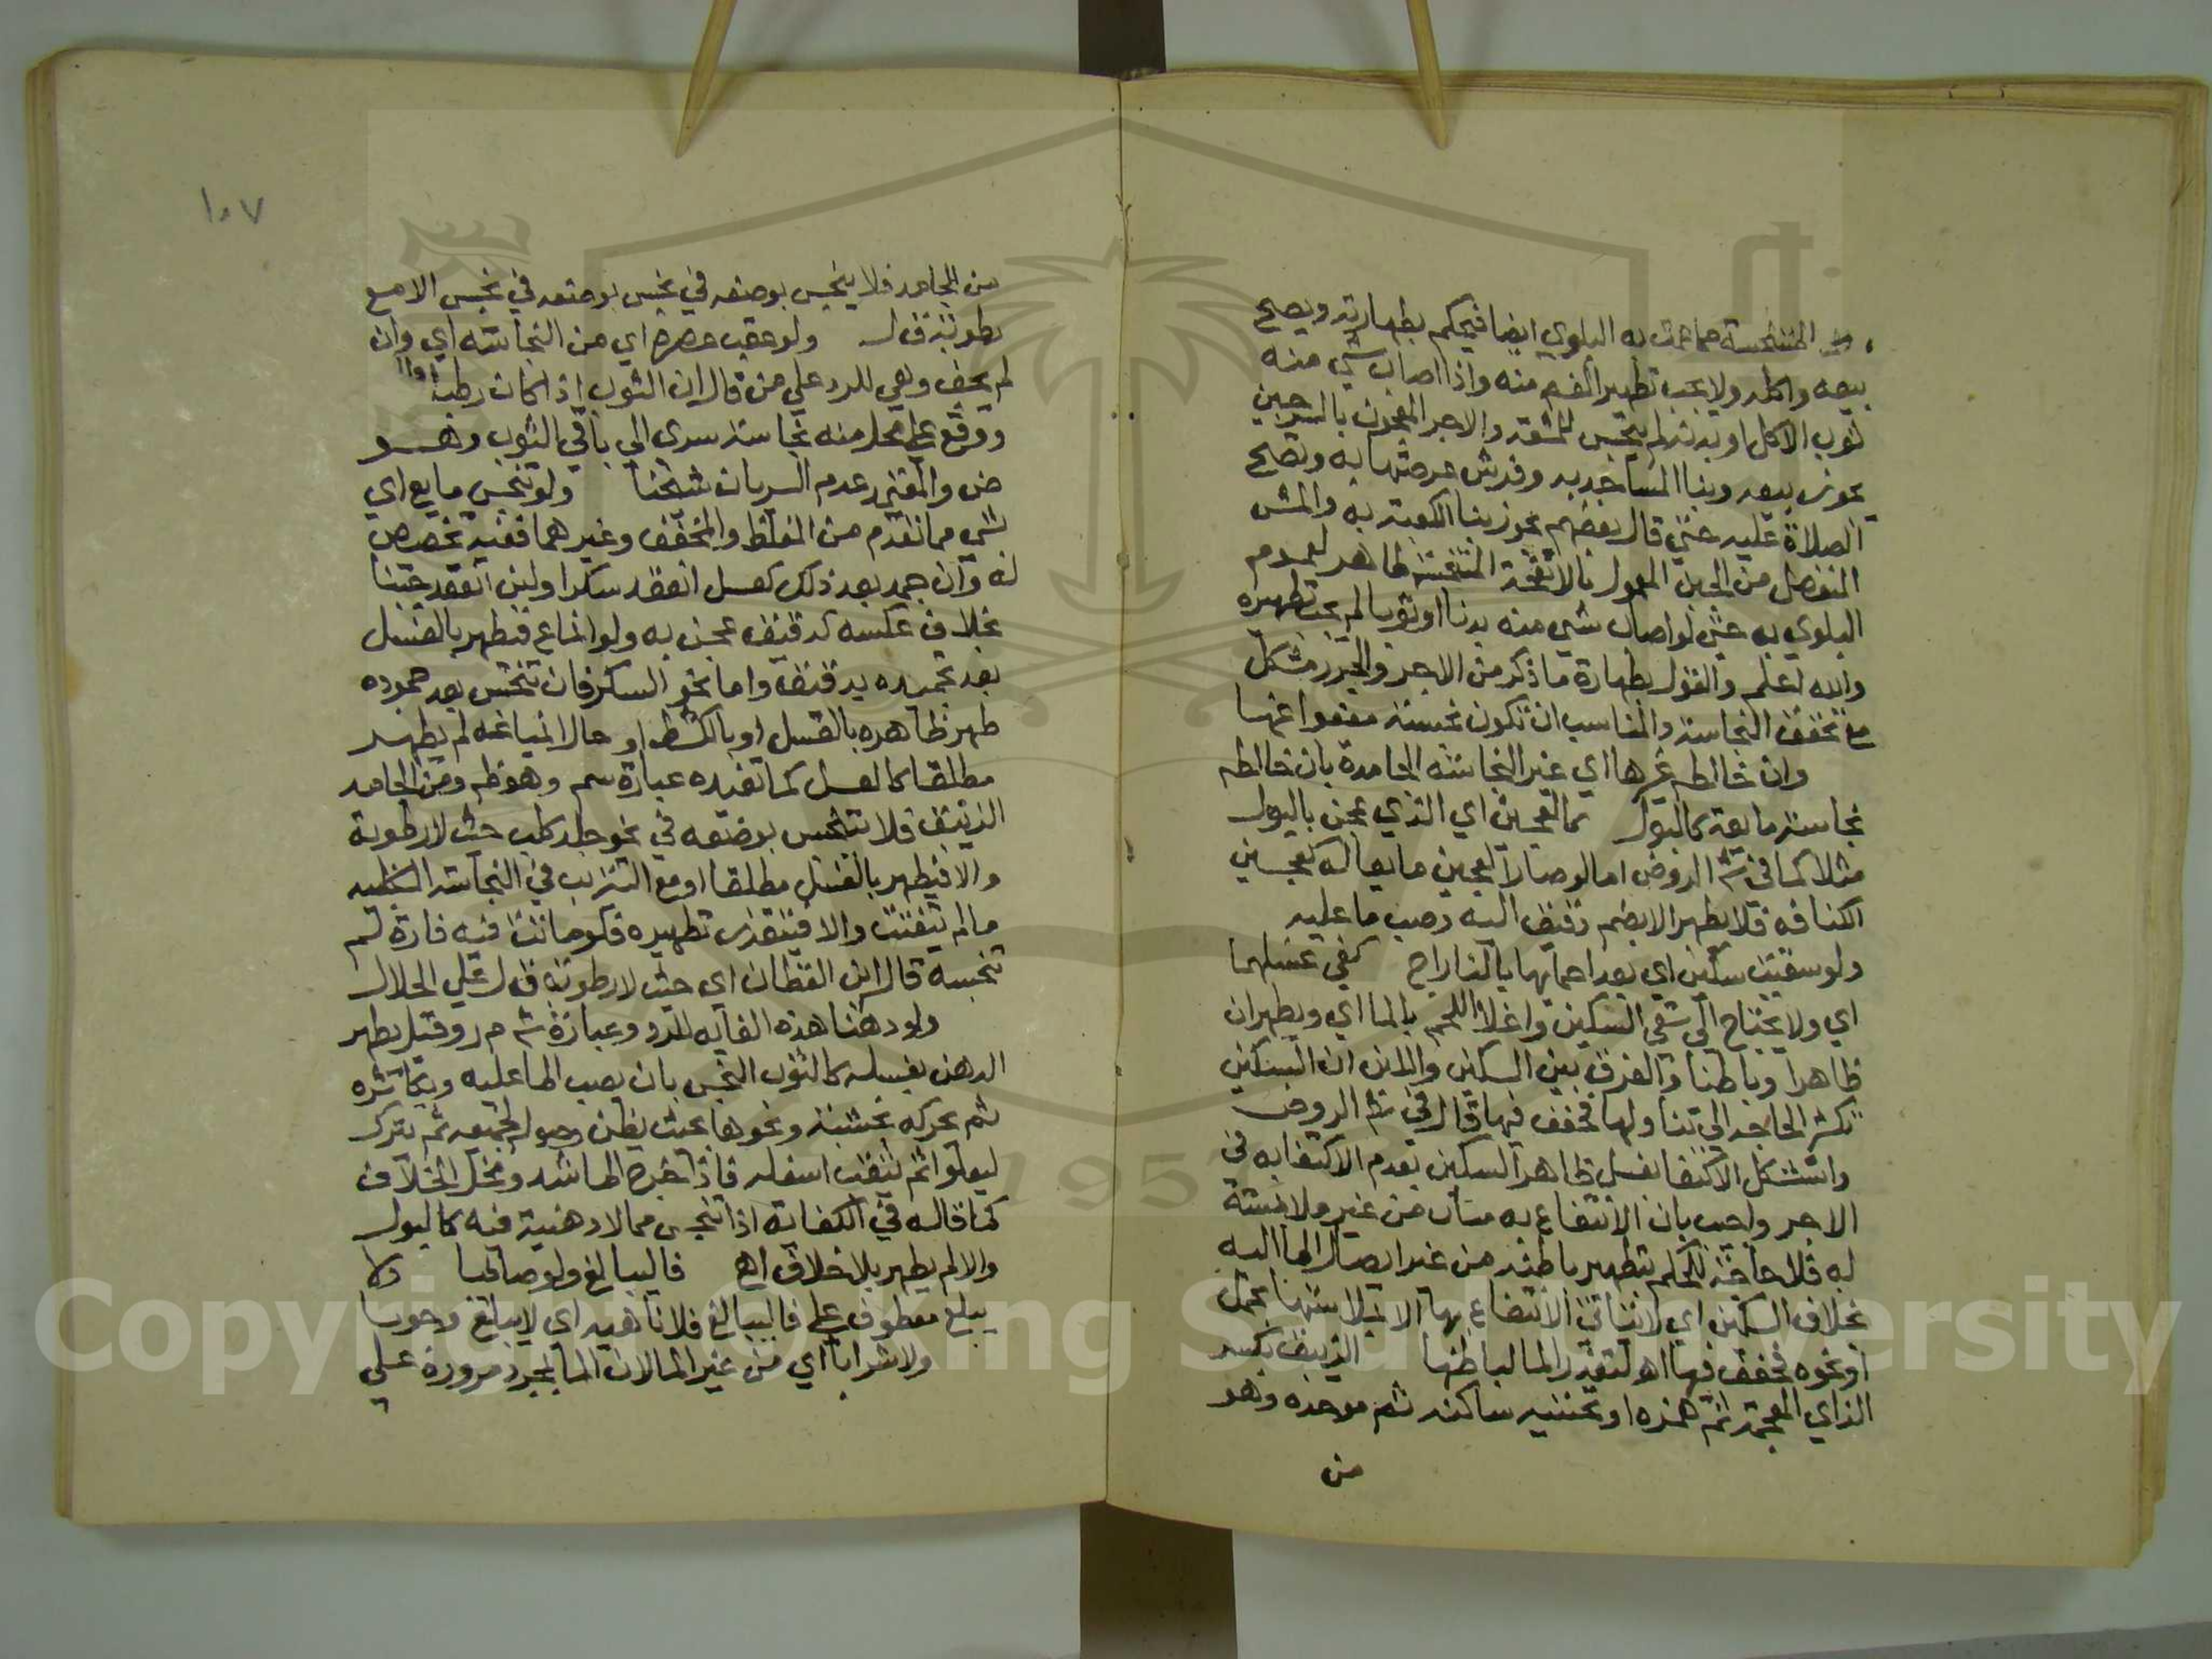 المتنجسة مما عمت به البلوي ايضا فيحكم بطهارته ويصح
بيعه واكله ولا يجب تطهير الفم منه واذا اصاب شي منه
ثوب الاكل او بدنه لم ينجس للمشقة والاجر المعجون بالسرجين
يجوز بيعه وبنا المساجد به وفرش عرصتها به وتصح
الصلاة عليه حتي قال بعضهم يجوز بنا الكعبة به والمش
المنفصل من الجبن المعمول بالانفحة المتنجسة طاهر لعموم
البلوي به حتي لو اصاب شي منه بدنا او ثوبا لم يجب تطهيره
والله اعلم والقول بطهارة ما ذكر من الاجر والجبن مشكل
مع تحقق النجاسة والمناسب ان تكون نجسة معفوا عنها
وان خالطه غيرها اي غير النجاسة الجامدة بان خالطه
نجاسة مايعة كالبول كالعجين اي الذي عجن بالبول
مثلا كما في شر الروض اما لو صار العجين مايعا كعجين
الكنافه فلا يطهر الا بضم دقيق اليه وصب ما عليه
ولو سقيت سكين اي بعد احمايها بالنار اح كفي غسلهما
اي ولا يحتاج الي سقي السكين واغلا اللحم بالما اي ويطهران
ظاهرا وباطنا والفرق بين السكين واللبن ان السكين
تكثر الحاجة الي تناولها فخفف فيها قال في شر الروض
واستشكل الاكتفا بغسل ظاهر السكين بعدم الاكتفا به في
الاجر واجيب بان الانتفاع به متأت من غير ملابسة
له فلا حاجة للحكم بتطهير باطنه من غير ايصال الما اليه
بخلاف السكين اي لا يتاتي الانتفاع بها الا بملابستها بحمل
او نحوه فخفف فيها اه لتعذر الما لباطنها الزيبق بكسر
الزاي المعجمة ثم همزه او تحتيه ساكنه ثم موحده وهو
من
١٠٧
من الجامد فلا ينجس بوضعه في نجس بوضعه في نجس الا مع
رطوبة ق ل ولو عقب عصره اي من النجاسة اي وان
لم يجف وهي للرد علي من قال ان الثوب اذا كان رطبا
ووقع علي محل منه نجاسة سري الي باقي الثوب وهو
ض والمعتمد عدم السريان شيخنا ولو تنجس مايع اي
شي مما تقدم من المغلظ والمخفف وغيرهما ففيه تخصيص
له وان جمد بعد ذلك كعسل انعقد سكرا ولبن انعقد جبنا
بخلاف عكسه كدقيق عجن به ولو انماع فيطهر بالغسل
بعد تجميده بدقيق واما نحو السكر فان تنجس بعد جموده
طهر ظاهره بالغسل او بالكشط او حال انمياعه لم يطهر
مطلقا كالعسل كما تفيده عبارة سم وهو ظ ومن الجامد
الزيبق فلا يتنجس بوضعه في نحو جلد كلب حيث لا رطوبة
والا فيطهر بالغسل مطلقا او مع التتريب في النجاسة الكلبيه
ما لم يتفتت والا فيتعذر تطهيره فلو ماتت فيه فارة لم
تنجسه قال ابن القطان اي حيث لا رطوبة ق ل علي الجلال
ولو دهنا هذه الغايه للرد وعبارة شر م ر وقيل يطهر
الدهن بغسله كالثوب النجس بان يصب الما عليه ويكاثره
ثم يحركه بخشبة ونحوها بحيث يظن وصوله لجميعه ثم يترك
ليعلو ثم يثقب اسفله فاذا خرج الما سد ومحل الخلاف
كما قاله في الكفاية اذا تنجس مما لا دهنية فيه كالبول
والا لم يطهر بلا خلاف اه فاليبالغ ولو صايما ولا
يبلع معطوف علي فاليبالغ فلا ناهيه اي لا يبلع وجوبا
ولا شرابا اي من غير الما لان الما بمجرد مروره علي